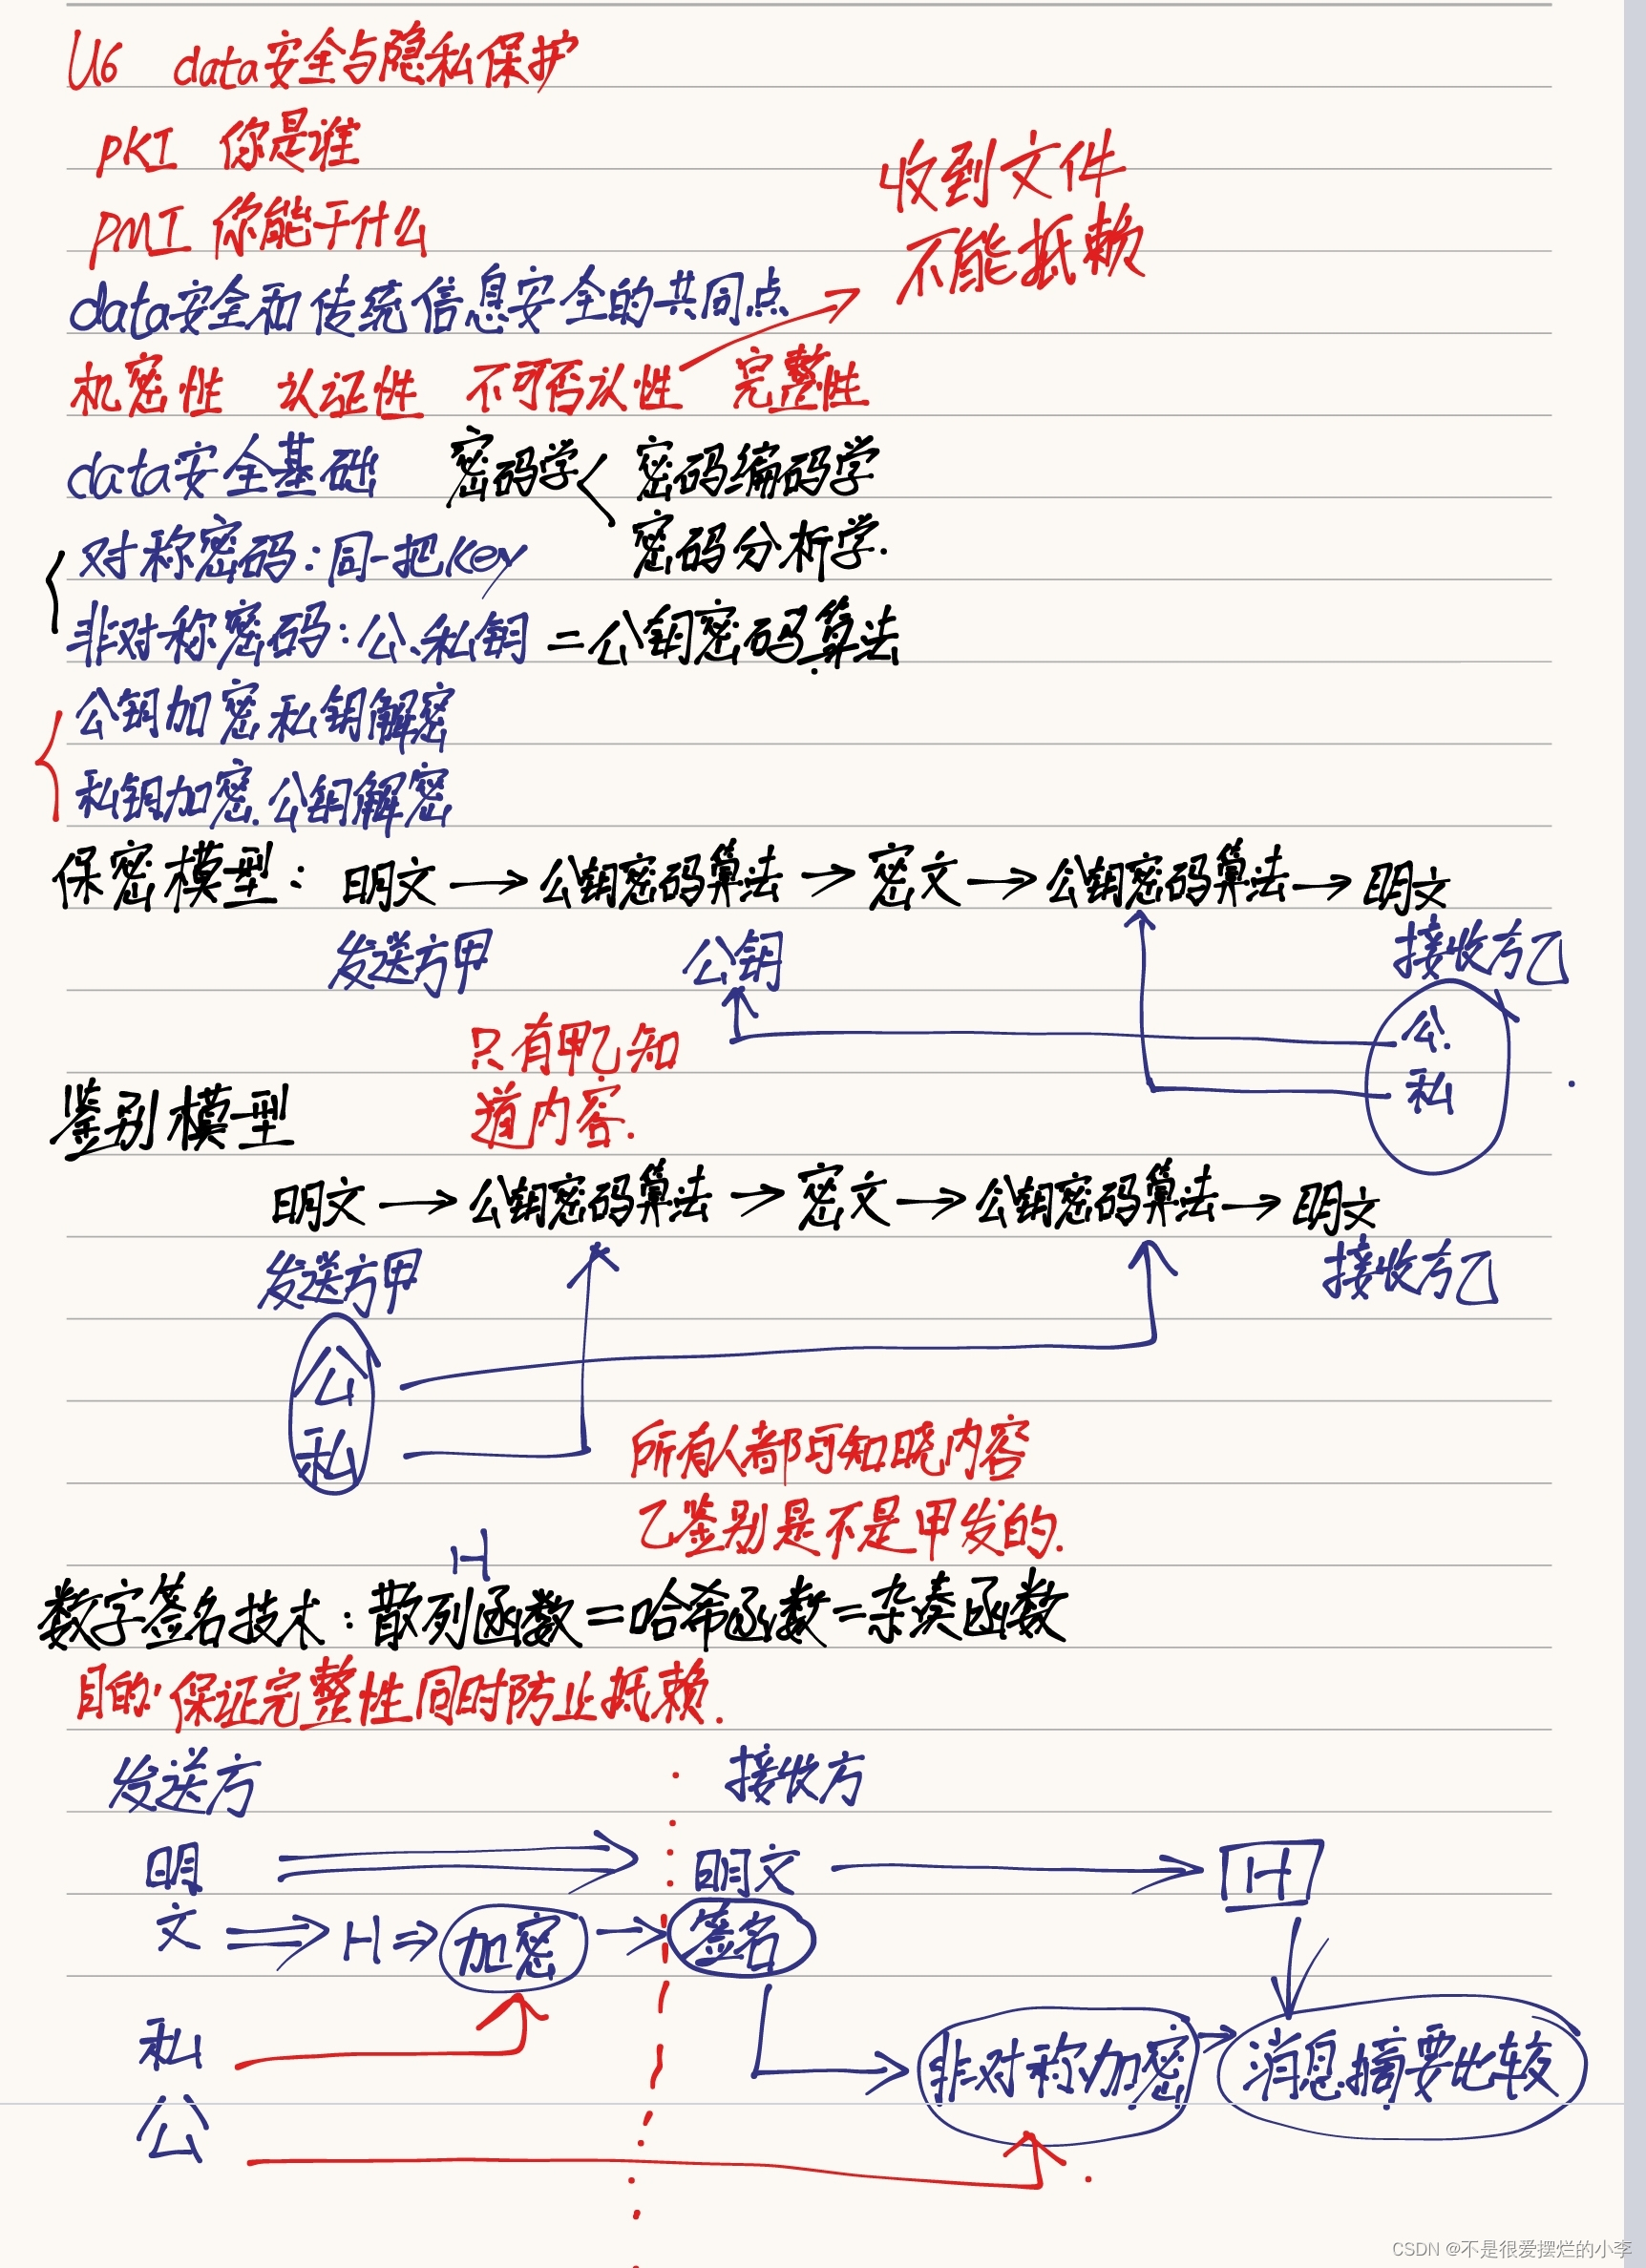 U6 data安全与隐私保护
PKI 你是谁
PMI 你能干什么
收到文件
不能抵赖
data安全和传统信息安全的共同点
机密性 认证性 不可否认性 完整性
data安全基础 密码学 密码编码学
密码分析学.
对称密码:同一把key
非对称密码:公、私钥 =公钥密码算法
公钥加密私钥解密
私钥加密.公钥解密
保密模型: 明文→公钥密码算法→密文→公钥密码算法→明文
发送方甲 公钥 接收方乙
公
私
只有甲乙知
道内容.
鉴别模型
明文→公钥密码算法→密文→公钥密码算法→明文
发送方甲 接收方乙
公
私
所有人都可知晓内容
乙鉴别是不是甲发的.
H
数字签名技术:散列函数=哈希函数=杂凑函数
目的:保证完整性同时防止抵赖.
发送方 接收方
明 明文 H
文 H 加密 签名
私 非对称加密 消息摘要比较
公
CSDN @不是很爱摆烂的小李